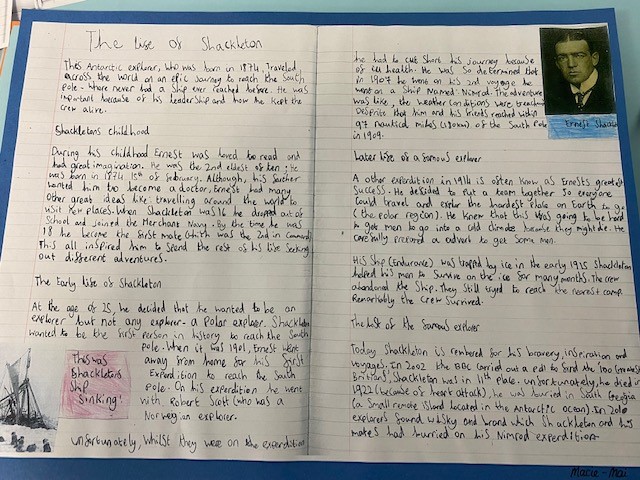 The life of Shackleton
This Antarctic explorer, who was born in 1874, Traveled
across the world on an epic Journey to reach the South
pole - where never had a Ship ever reached before. He was
important because of his leadership and how he kept the
crew alive.
Shackletons childhood
During his childhood Ernest was loved to read and
had great imagination. He was the 2nd eldest of ten. He
was born in 1874 15th of february. Although, his father
wanted him to become a doctor, Ernest had many
other great ideas like: travelling around the world to
visit new places. When Shackleton was 16 he dropped out of
School and Joined the Merchant Navy. By the time he was
18 he become the first mate (which was the 2nd in command)
This all inspired him to spend the rest of his life Seeking
out different adventures.
The Early life of Shackleton
At the age of 25, he decided that he wanted to be an
explorer but not any explorer- a Polar explorer. Shackleton
wanted to be the first person in history to reach the South
pole. When it was 1901, Ernest went
away from home for his first
Expedition to reach the South
pole. On his experdition he went
with Robert Scott (who was a
Norwegian explorer.
This was
Shackletons
Ship
Sinking!
unfortunately, whilst they were on the experdition
he had to cut Short his journey because
of ill health. He was So determined that
in 1907 he went on his 2nd voyage he
went on a Ship Named: Nimrod. The adventure
was like, the weather conditions were
Despite that him and his friends reached within
97 nautical miles (180km) of the South Pole
in 1909.
Ernest
Later life of a famous explorer
A other experdition in 1914 is often know as Ernests greatest
Success. He desided to put a team together So everyone
Could travel and explor the hardest place on Earth to go
(the polar region). He knew that this was going to be hard
to get men to go into a cold climate because they might die. He
carefully a advert to get Some men.
His Ship (Endurance) was traped by ice in the early 1915 Shackleton
helped his men to Survive on the ice for many months. The crew
abandoned the Ship. They Still tryed to reach the nearest camp.
Remarkbly the Crew Survived.
The last of the famous explorer
Today Shackleton is rembered for his bravery, inspiration and
Voyages. In 2002 the BBC carried out a poll to find the 100 Greatest
Britians, Shackleton was in 11th place. unfortunately, he died in
1922 (because of heart attack), he was burried in South Georgia
(a Small remote island located in the Antarctic ocean). In 2010
explorers found whisky and brand which Shackleton and his
mates had burried on his Nimrod experdition.